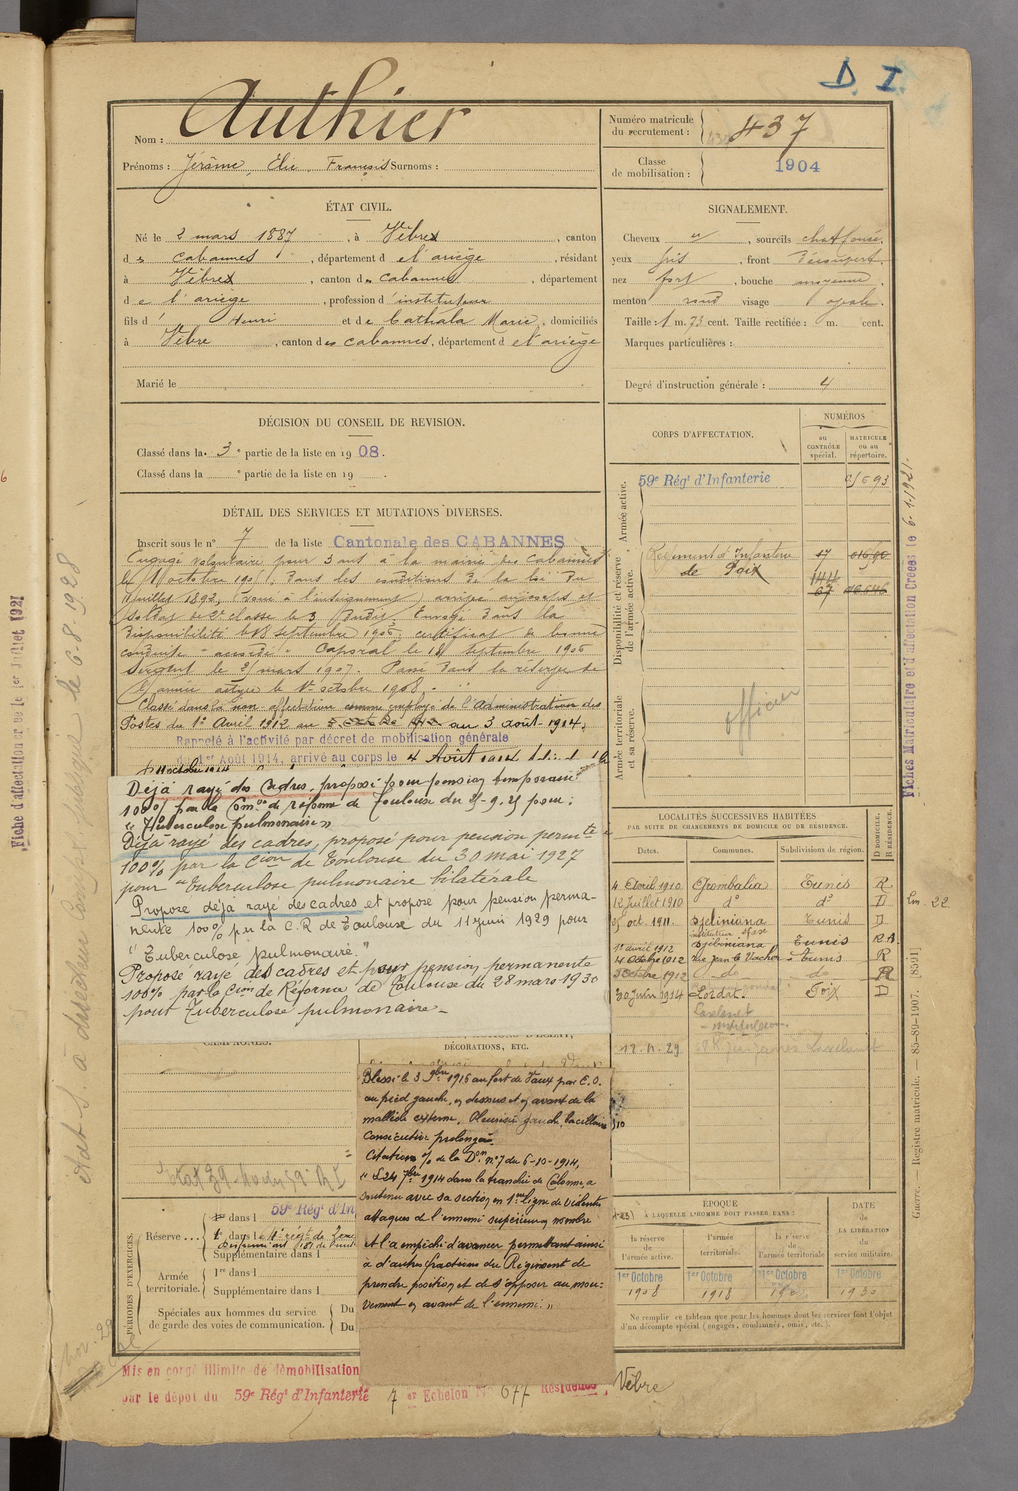 D. I.
Nom : Authier
Prénoms : Jérôme, Elie, François Surnoms :
Numéro matricule du recrutement : 437
Classe de mobilisation : 1904
ÉTAT CIVIL.
Né le 2 mars 1887, à Vèbre, canton
des Cabannes, département de l'ariège, résidant
à Vèbre, canton des Cabannes, département
de l'ariège, profession d'instituteur
fils d' Henri et de Cathala Marie, domiciliés
à Vèbre, canton des Cabannes, département de l'ariège
Marié le
SIGNALEMENT.
Cheveux, sourcils
yeux gris, front découvert
nez fort, bouche moyenne
menton rond visage ovale
Taille : 1 m. 73 cent. Taille rectifiée : m. cent.
Marques particulières :
Degré d'instruction générale : 4
DÉCISION DU CONSEIL DE REVISION.
Classé dans la 3e partie de la liste en 1908.
Classé dans la e partie de la liste en 19
DÉTAIL DES SERVICES ET MUTATIONS DIVERSES.
Inscrit sous le n° 7 de la liste Cantonale des CABANNES
Engagé volontaire pour 3 ans à la mairie des Cabannes
le octobre 190, dans les conditions de la loi du
juillet 1892
soldat de 2e classe le Envoyé dans la
disponibilité le 18 septembre 1906; certificat de bonne
conduite "accordé" Caporal le 18 septembre 1906
Sergent le 21 mars 1907. Passé dans la réserve de
l'armée active le 1er octobre 1908.
Classé dans la non-affectation comme employé de l'Administration des
Postes du 1er Avril 1912 au 3 août 1914.
Rappelé à l'activité par décret de mobilisation générale
du 1er Août 1914, arrivé au corps le 4 Août 1914
Déjà rayé des Cadres, proposé pour pension temporaire
100% par la Comon de réforme de Toulouse du 25-9-25 pour :
"Tuberculose pulmonaire"
Déjà rayé des cadres, proposé pour pension permte
100% par la Cion de Toulouse du 30 mai 1927
pour "Tuberculose pulmonaire bilatérale
Proposé déjà rayé des cadres et proposé pour pension perma-
nente 100% par la C.R de Toulouse du 11 juin 1929 pour
"Tuberculose pulmonaire."
Proposé rayé des cadres et pour pension permanente
100% par la Cion de Réforme de Toulouse du 28 mars 1930
pour Tuberculose pulmonaire-
CORPS D'AFFECTATION.
NUMÉROS
au CONTRÔLE spécial.
MATRICULE ou au répertoire.
Armée active.
59e Régt d'Infanterie
Disponibilité et réserve de l'armée active.
Régiment d'Infanterie
de Foix
Armée territoriale et sa réserve.
officier
LOCALITÉS SUCCESSIVES HABITÉES
PAR SUITE DE CHANGEMENTS DE DOMICILE OU DE RÉSIDENCE.
Dates. Communes. Subdivisions de région. D DOMICILE. R RÉSIDENCE.
4 Avril 1910 Grombalia Tunis R
12 Juillet 1910 d° d° D
25 oct. 1911 Djebiniana Tunis D
instituteur Sfax
1er avril 1912 Djebiniana Tunis R.A.
4 Octobre 1912 rue Jean le Vacher Tunis R
5 Octobre 1912 do do R
30 Juin 1914 Lordat Foix D
Lavelanet
17. 11. 29
CAMPAGNES.
DÉCORATIONS, ETC.
Blessé le 3 9bre 1916 au fort de Vaux par E.O.
au pied gauche, en dessous et en avant de la
malléole externe. Pleurésie gauche, bacillaire
Consécutive prolongée.
Citation % de la Don n°7 du 6-10-1914,
"Le 24 7bre 1914 dans la tranchée de Calonne, a
soutenu avec sa section en 1ère ligne de violentes
attaques de l'ennemi supérieur en nombre
et l'a empêché d'avancer permettant ainsi
à d'autres fractions du Régiment de
prendre position et de s'opposer au mou-
vement en avant de l'ennemi."
PÉRIODES D'EXERCICES.
Réserve... 1re dans l 59e Régt d'In
Supplémentaire dans l
Armée territoriale. 1re dans l
Supplémentaire dans l
Spéciales aux hommes du service de garde des voies de communication. Du
Du
EPOQUE
À LAQUELLE L'HOMME DOIT PASSER DANS :
la réserve de l'armée active. l'armée territoriale. la réserve de l'armée territoriale
DATE DE LA LIBÉRATION du service militaire.
1er Octobre 1908
1er Octobre 1918
1er Octobre
1er Octobre 1930
Ne remplir ce tableau que pour les hommes dont les services font l'objet
d'un décompte spécial (engagés, condamnés, omis, etc.).
Mis en congé illimité de démobilisation
par le dépôt du 59e Régt d'Infanterie 7 er Echelon N° 677 Résidence, Vèbre
Fiche d'affectation créée le 1er Juillet 1921
le 6.8.1928
Fiches Matriculaire et d'affectation Créées le 6.1.1921.
Guerre. — Registre matricule. — 85-89-1907. [8391]